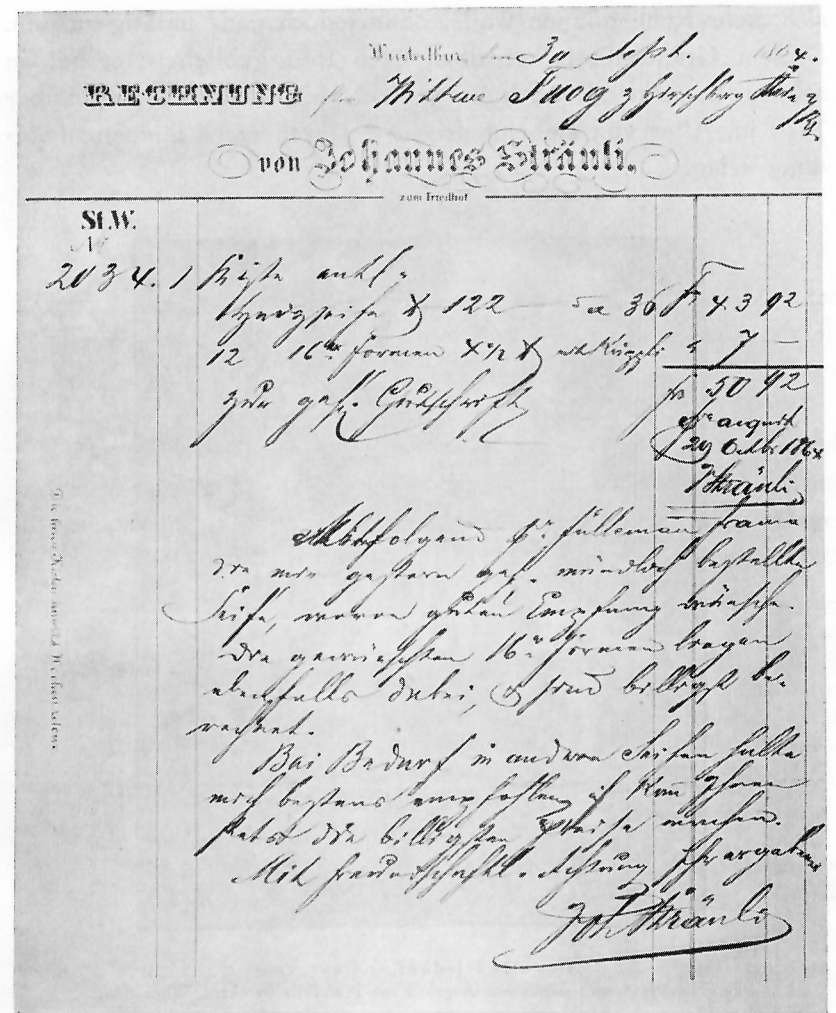 Winterthur, den 30 Sept. 1864.
RECHNUNG für Wittwe Fuog z Hirschberg Stein a/Rh
von Johannes Sträuli,
zum Friedhof
St.W.
№
2034. 1 Kiste enth.
Harzseife ℔ 122 a 36 Fr 43 92
12 16er Formen 4½ ℔ " 7 —
zur gefl. Gutschrift frs 50 92
acquit
29 Octbr 1864
J Sträuli
Mitfolgend pr. Fullemann
die mir gestern gef. mündlich bestellte
Seife, wovon guten Empfang wünsche.
Die gewünschten 16er Formen liegen
ebenfalls dabei, & sind billigst be-
rechnet.
Bei Bedarf in andren Seifen halte
mich bestens empfohlen, ich kann Ihnen
stets die billigsten Preise machen.
Mit freundschaftl. Achtung Ihr ergebener
Joh Sträuli